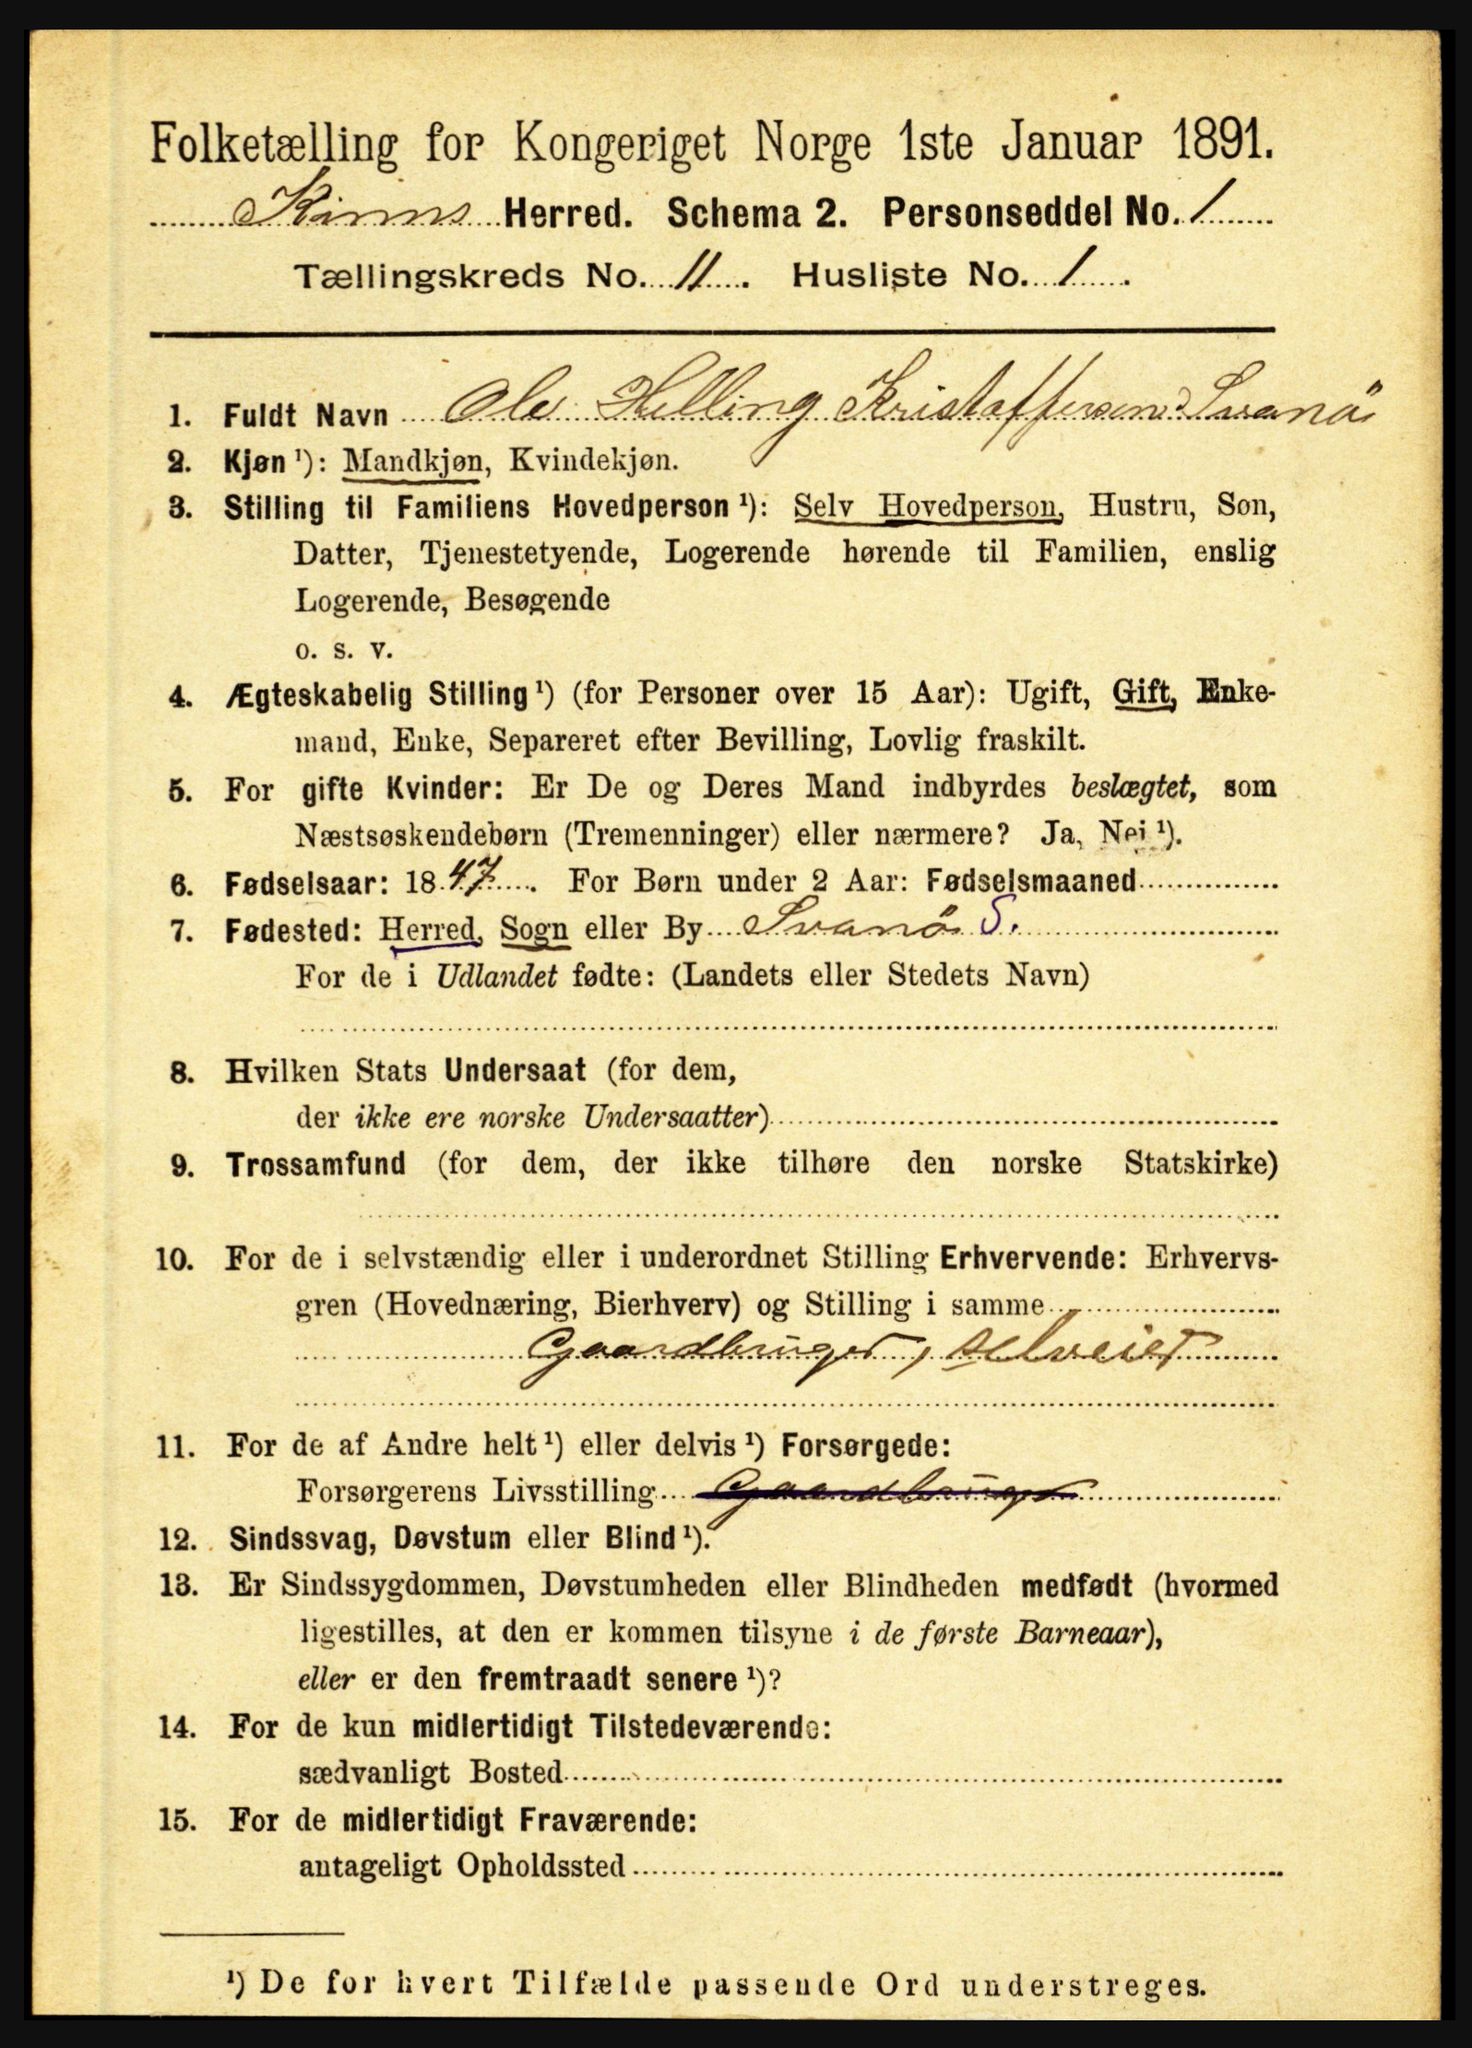 Folketælling for Kongeriget Norge 1ste Januar 1891.
Kinns Herred. Schema 2. Personseddel No. 1
Tællingskreds No. 11. Husliste No. 1.
1. Fuldt Navn Ole Helling Kristoffersen Svanö
2. Kjøn ¹): Mandkjøn, Kvindekjøn.
3. Stilling til Familiens Hovedperson ¹): Selv Hovedperson, Hustru, Søn,
Datter, Tjenestetyende, Logerende hørende til Familien, enslig
Logerende, Besøgende
o. s. v.
4. Ægteskabelig Stilling ¹) (for Personer over 15 Aar): Ugift, Gift, Enke-
mand, Enke, Separeret efter Bevilling, Lovlig fraskilt.
5. For gifte Kvinder: Er De og Deres Mand indbyrdes beslægtet, som
Næstsøskendebørn (Tremenninger) eller nærmere? Ja, Nei ¹).
6. Fødselsaar: 1847. For Børn under 2 Aar: Fødselsmaaned
7. Fødested: Herred, Sogn eller By Svanö S.
For de i Udlandet fødte: (Landets eller Stedets Navn)
8. Hvilken Stats Undersaat (for dem,
der ikke ere norske Undersaatter)
9. Trossamfund (for dem, der ikke tilhøre den norske Statskirke)
10. For de i selvstændig eller i underordnet Stilling Erhvervende: Erhvervs-
gren (Hovednæring, Bierhverv) og Stilling i samme
Gaardbruger, selveier
11. For de af Andre helt ¹) eller delvis ¹) Forsørgede:
Forsørgerens Livsstilling Gaardbruger
12. Sindssvag, Døvstum eller Blind ¹).
13. Er Sindssygdommen, Døvstumheden eller Blindheden medfødt (hvormed
ligestilles, at den er kommen tilsyne i de første Barneaar),
eller er den fremtraadt senere ¹)?
14. For de kun midlertidigt Tilstedeværende:
sædvanligt Bosted
15. For de midlertidigt Fraværende:
antageligt Opholdssted
¹) De for hvert Tilfælde passende Ord understreges.